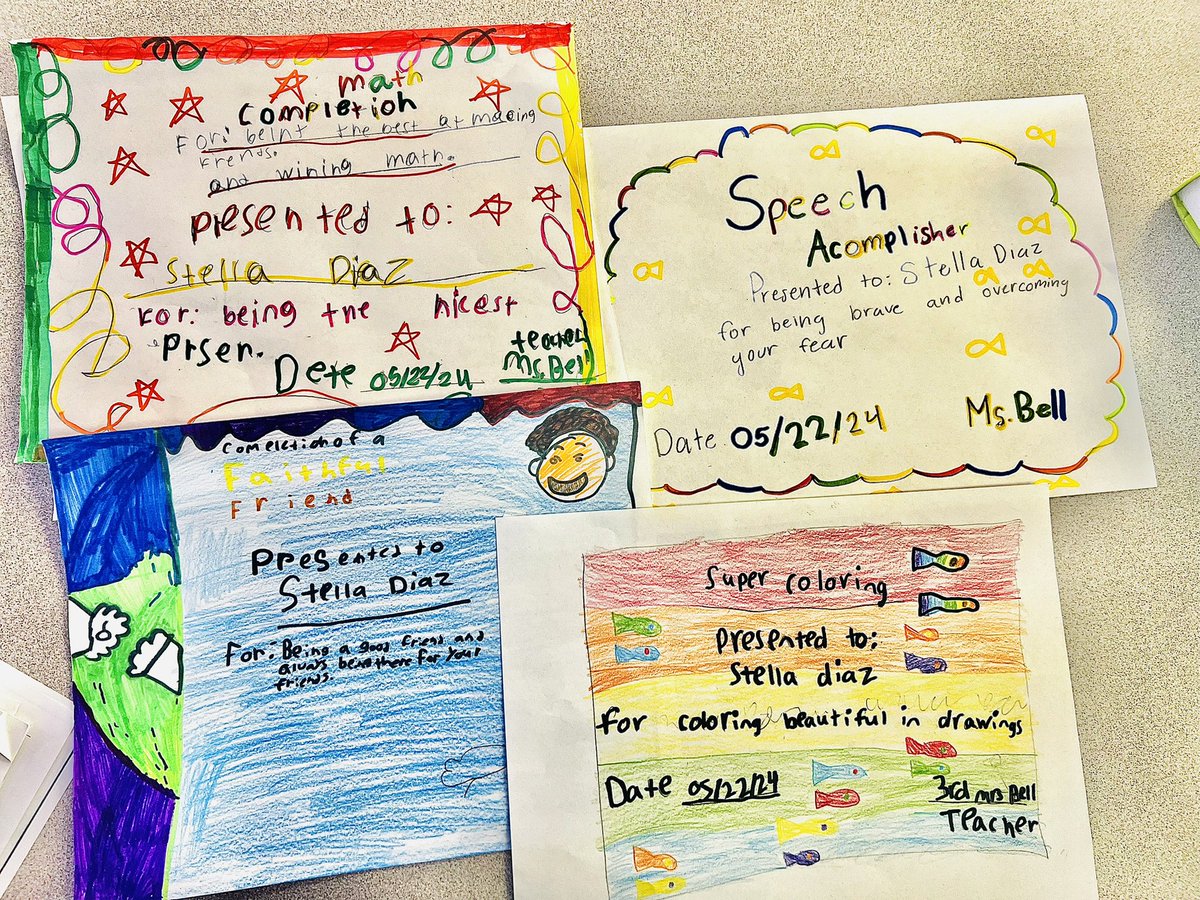 math
completion
For: beint the best at macing
frends.
and wining math.
presented to:
Stella Diaz
For: being the nicest
Prsen.
teacher
Dete 05/22/24 Ms. Bell
Speech
Acomplisher
Presented to: Stella Diaz
for being brave and overcoming
your fear
Date 05/22/24 Ms. Bell
Comelction of a
Faithful
Friend
Presented to
Stella Diaz
For: Being a good friend and
always being there for your
friends.
Super coloring
presented to:
Stella diaz
for coloring beautiful in drawings
Date 05/22/24 3rd mrs Bell
Teacher